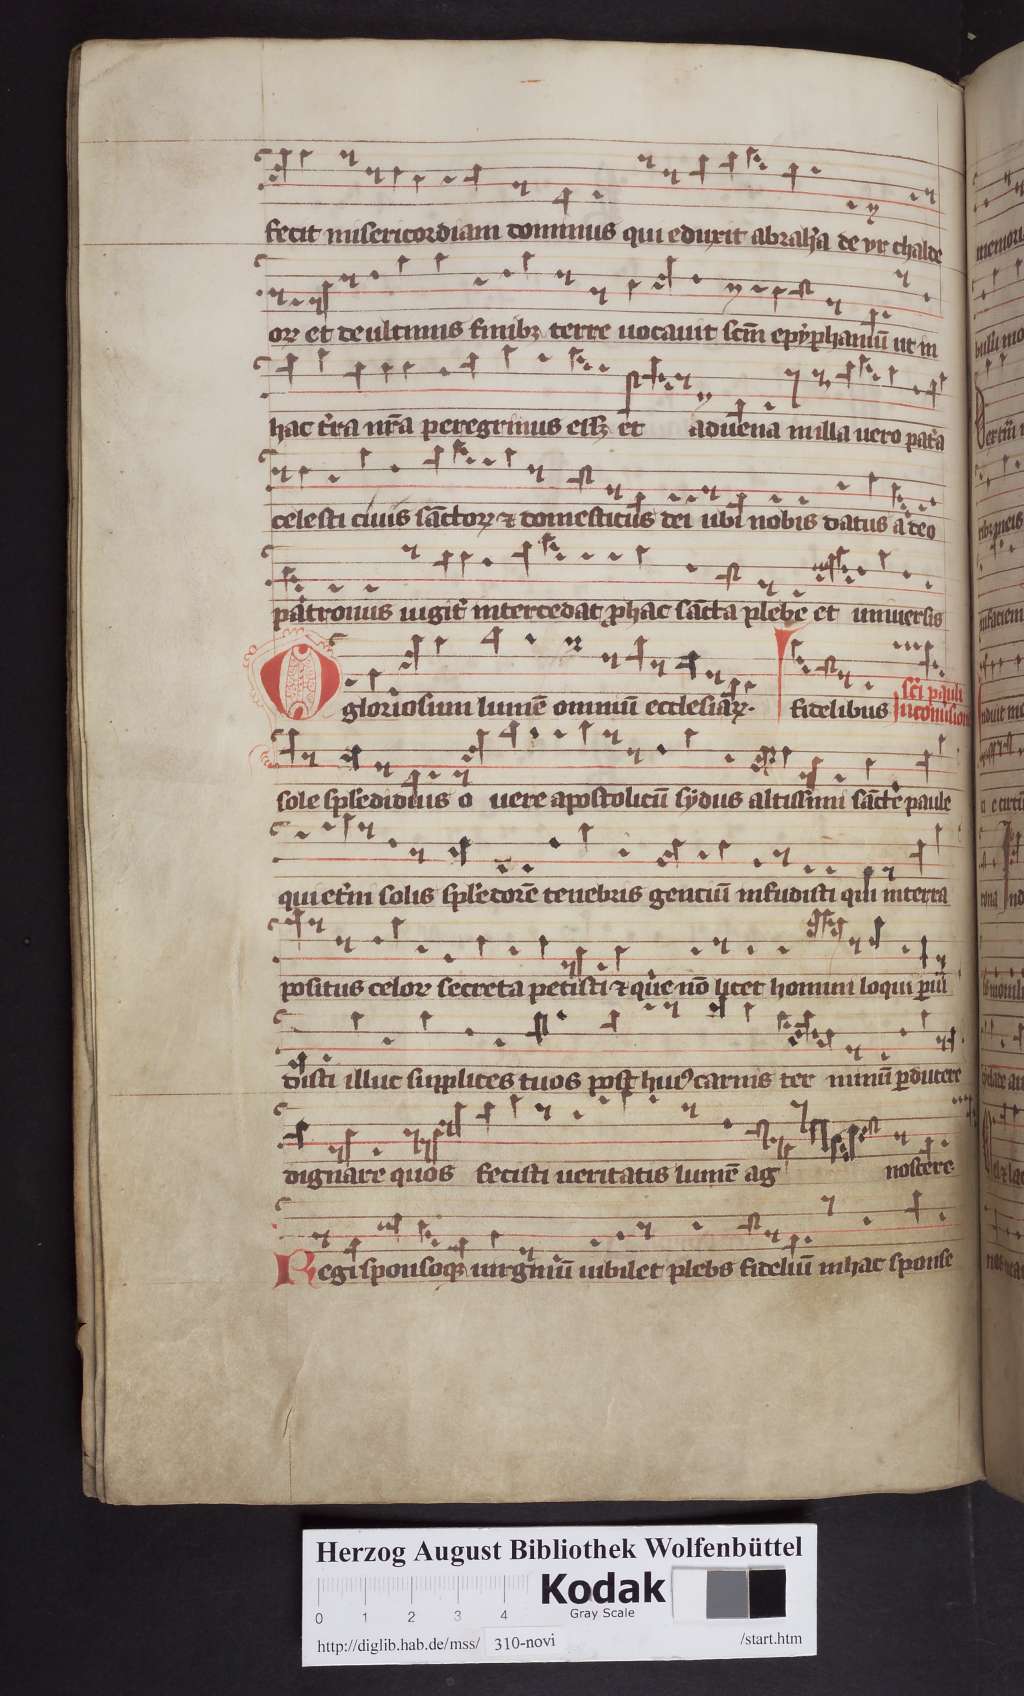 fecit misericordiam dominus qui eduxit abrahā de vr chalde
oꝝ et de ultimis finibꝫ terre uocauit scm̄ epyphaniū ut in
hac t̄ra nr̄a peregrinus eēt et aduena in illa uero pat̄a
celesti ciuis sāctoꝝ ⁊ domesticus dei ubi nobis datus a deo
patronus iugit̄ intercedat p hac sācta plebe et uniuersis
O gloriosum lumē omniū ecclesiaꝝ· fidelibus scī pauli
sole splēdidius o uere apostolicū sydus altissimi sācte paule In cōmisione
qui et̄ni solis splēdorē tenebris genciū infudisti qui in terra
positus celoꝝ secreta petisti ⁊ que nō licet homini loqui
disti illuc supplices tuos post huiꝰ carnis ter minū ꝑducere
dignare quos fecisti ueritatis lumē ag noscere
Regi sponsoqꝫ uirginiū iubilet plebs fideliū in hac sponse
memori
Herzog August Bibliothek Wolfenbüttel
0 1 2 3 4
Kodak
Gray Scale
http://diglib.hab.de/mss/ 310-novi /start.htm